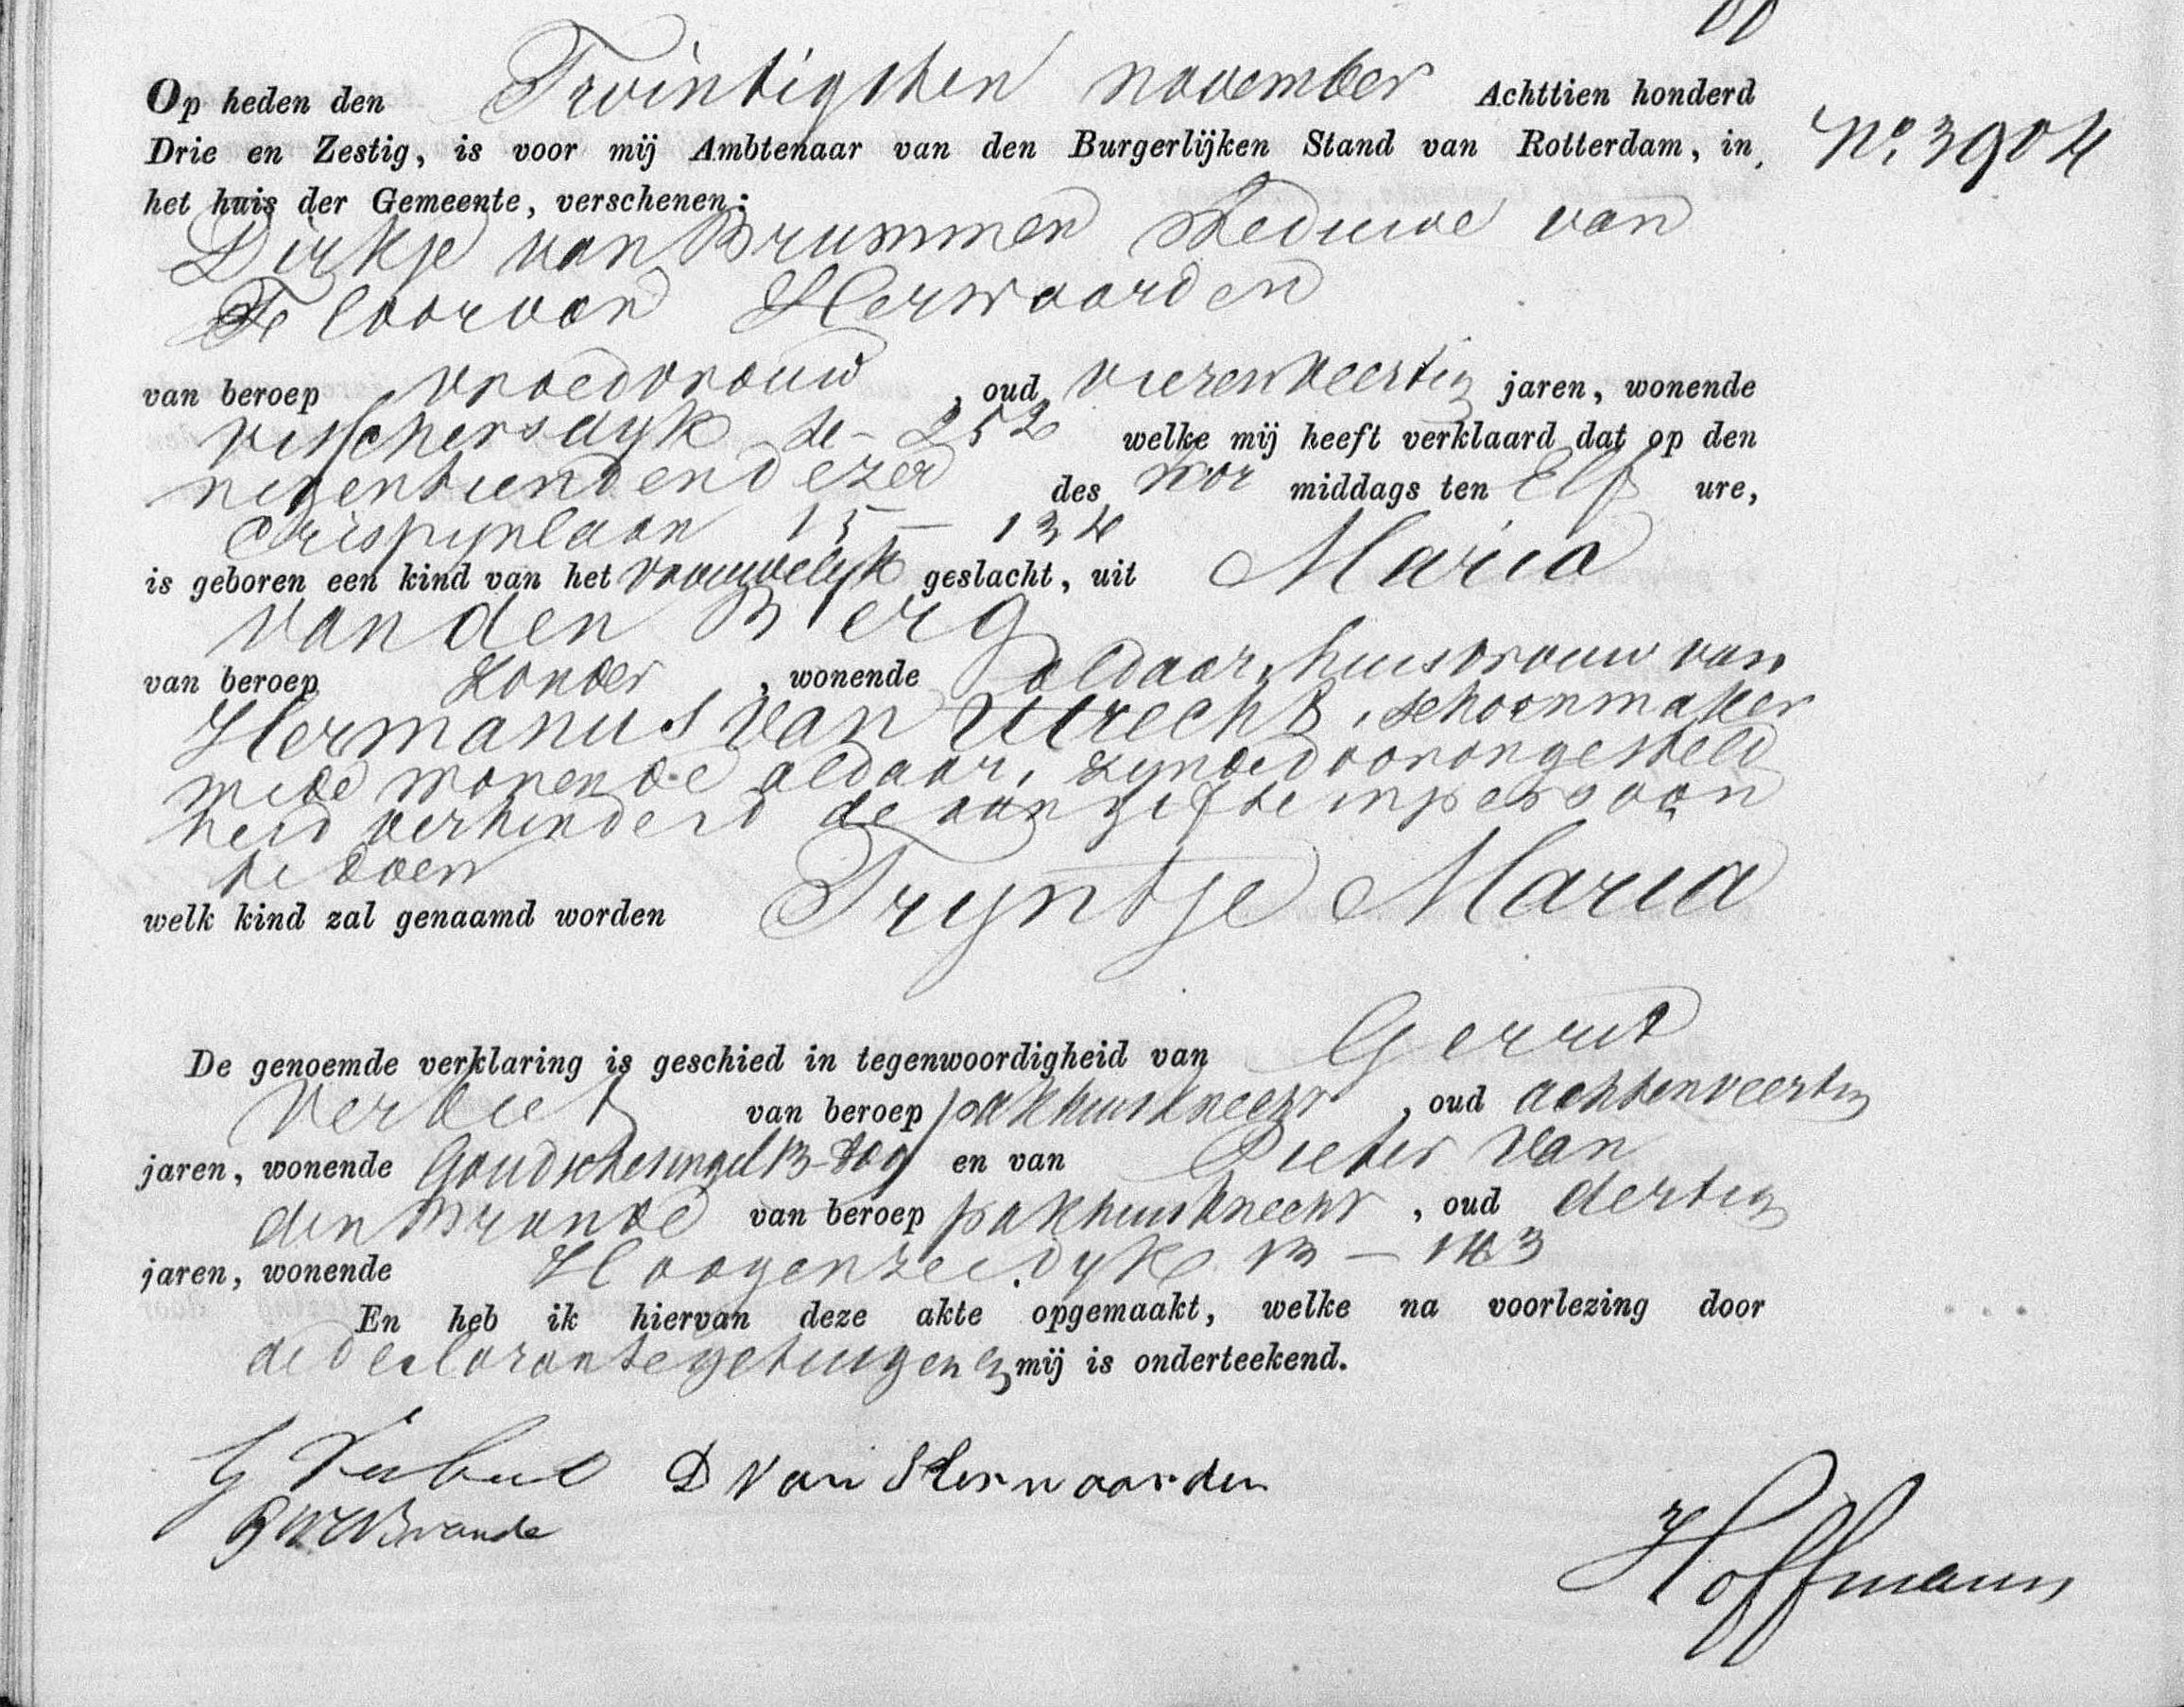 Op heden den Twintigsten november Achttien honderd
Drie en Zestig, is voor mij Ambtenaar van den Burgerlijken Stand van Rotterdam, in
No. 3904
het huis der Gemeente, verschenen:
Dirkje van Brummen Weduwe van
Floor van Herwaarden
van beroep vroedvrouw, oud vierenveertig jaren, wonende
visschersdyk 252 welke mij heeft verklaard dat op den
negentienden dezer des voor middags ten Elf ure,
Crispynlaan 15 – 134
is geboren een kind van het vrouwelyk geslacht, uit Maria
van den Berg
van beroep Zonder, wonende aldaar, huisvrouw van
Hermanus van Utrecht, schoenmaker
mede wonende aldaar, zynde door ongesteld
heid verhinderd de aangifte in persoon
te doen
welk kind zal genaamd worden Tryntje Maria
De genoemde verklaring is geschied in tegenwoordigheid van Gerrit
van beroep pakhuisknecht, oud achtenveertig
jaren, wonende Goudschesingel en van Pieter van
den Brande van beroep pakhuisknecht, oud dertig
jaren, wonende Hoogenzeedyk 13 – 143
En heb ik hiervan deze akte opgemaakt, welke na voorlezing door
de declarante getuigen en mij is onderteekend.
D van Herwaarden
Brande
Hoffmann